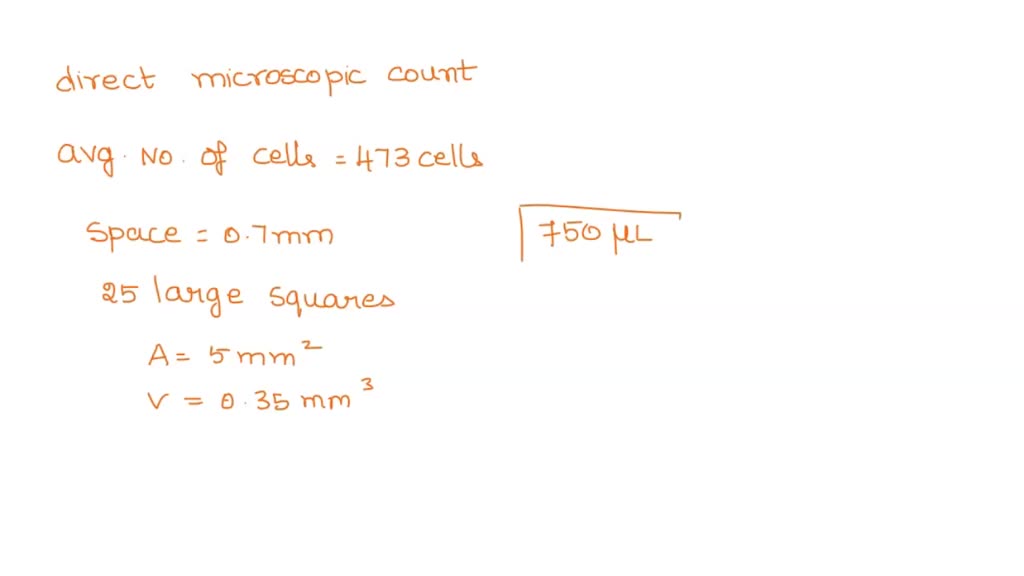 direct microscopic count
avg. No. of cells = 473 cells
Space = 0.7mm
750 μL
25 large squares
A = 5 mm²
V = 0.35 mm³